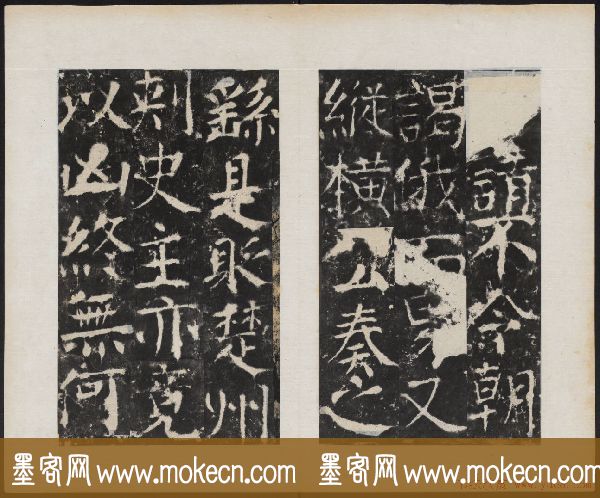 不令朝
謁俄又
縱橫公奏之
繇是貶楚州
刺史主亦竟
以凶終無何
墨客网 www.mokecn.com 墨客网 www.mokecn.com